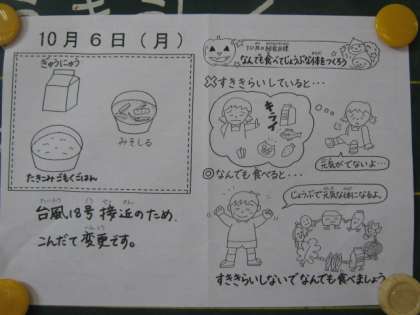 10月6日(月)
ぎゅうにゅう
みそしる
たきこみごもくごはん
台風18号 接近のため、
こんだて変更です。
10月の給食目標
なんでも食べてじょうぶな体をつくろう
×すききらいしていると・・・
キライ
元気がでないよ…
◎なんでも食べると・・・
じょうぶで元気な体になるよ。
すききらいしないでなんでも食べましょう